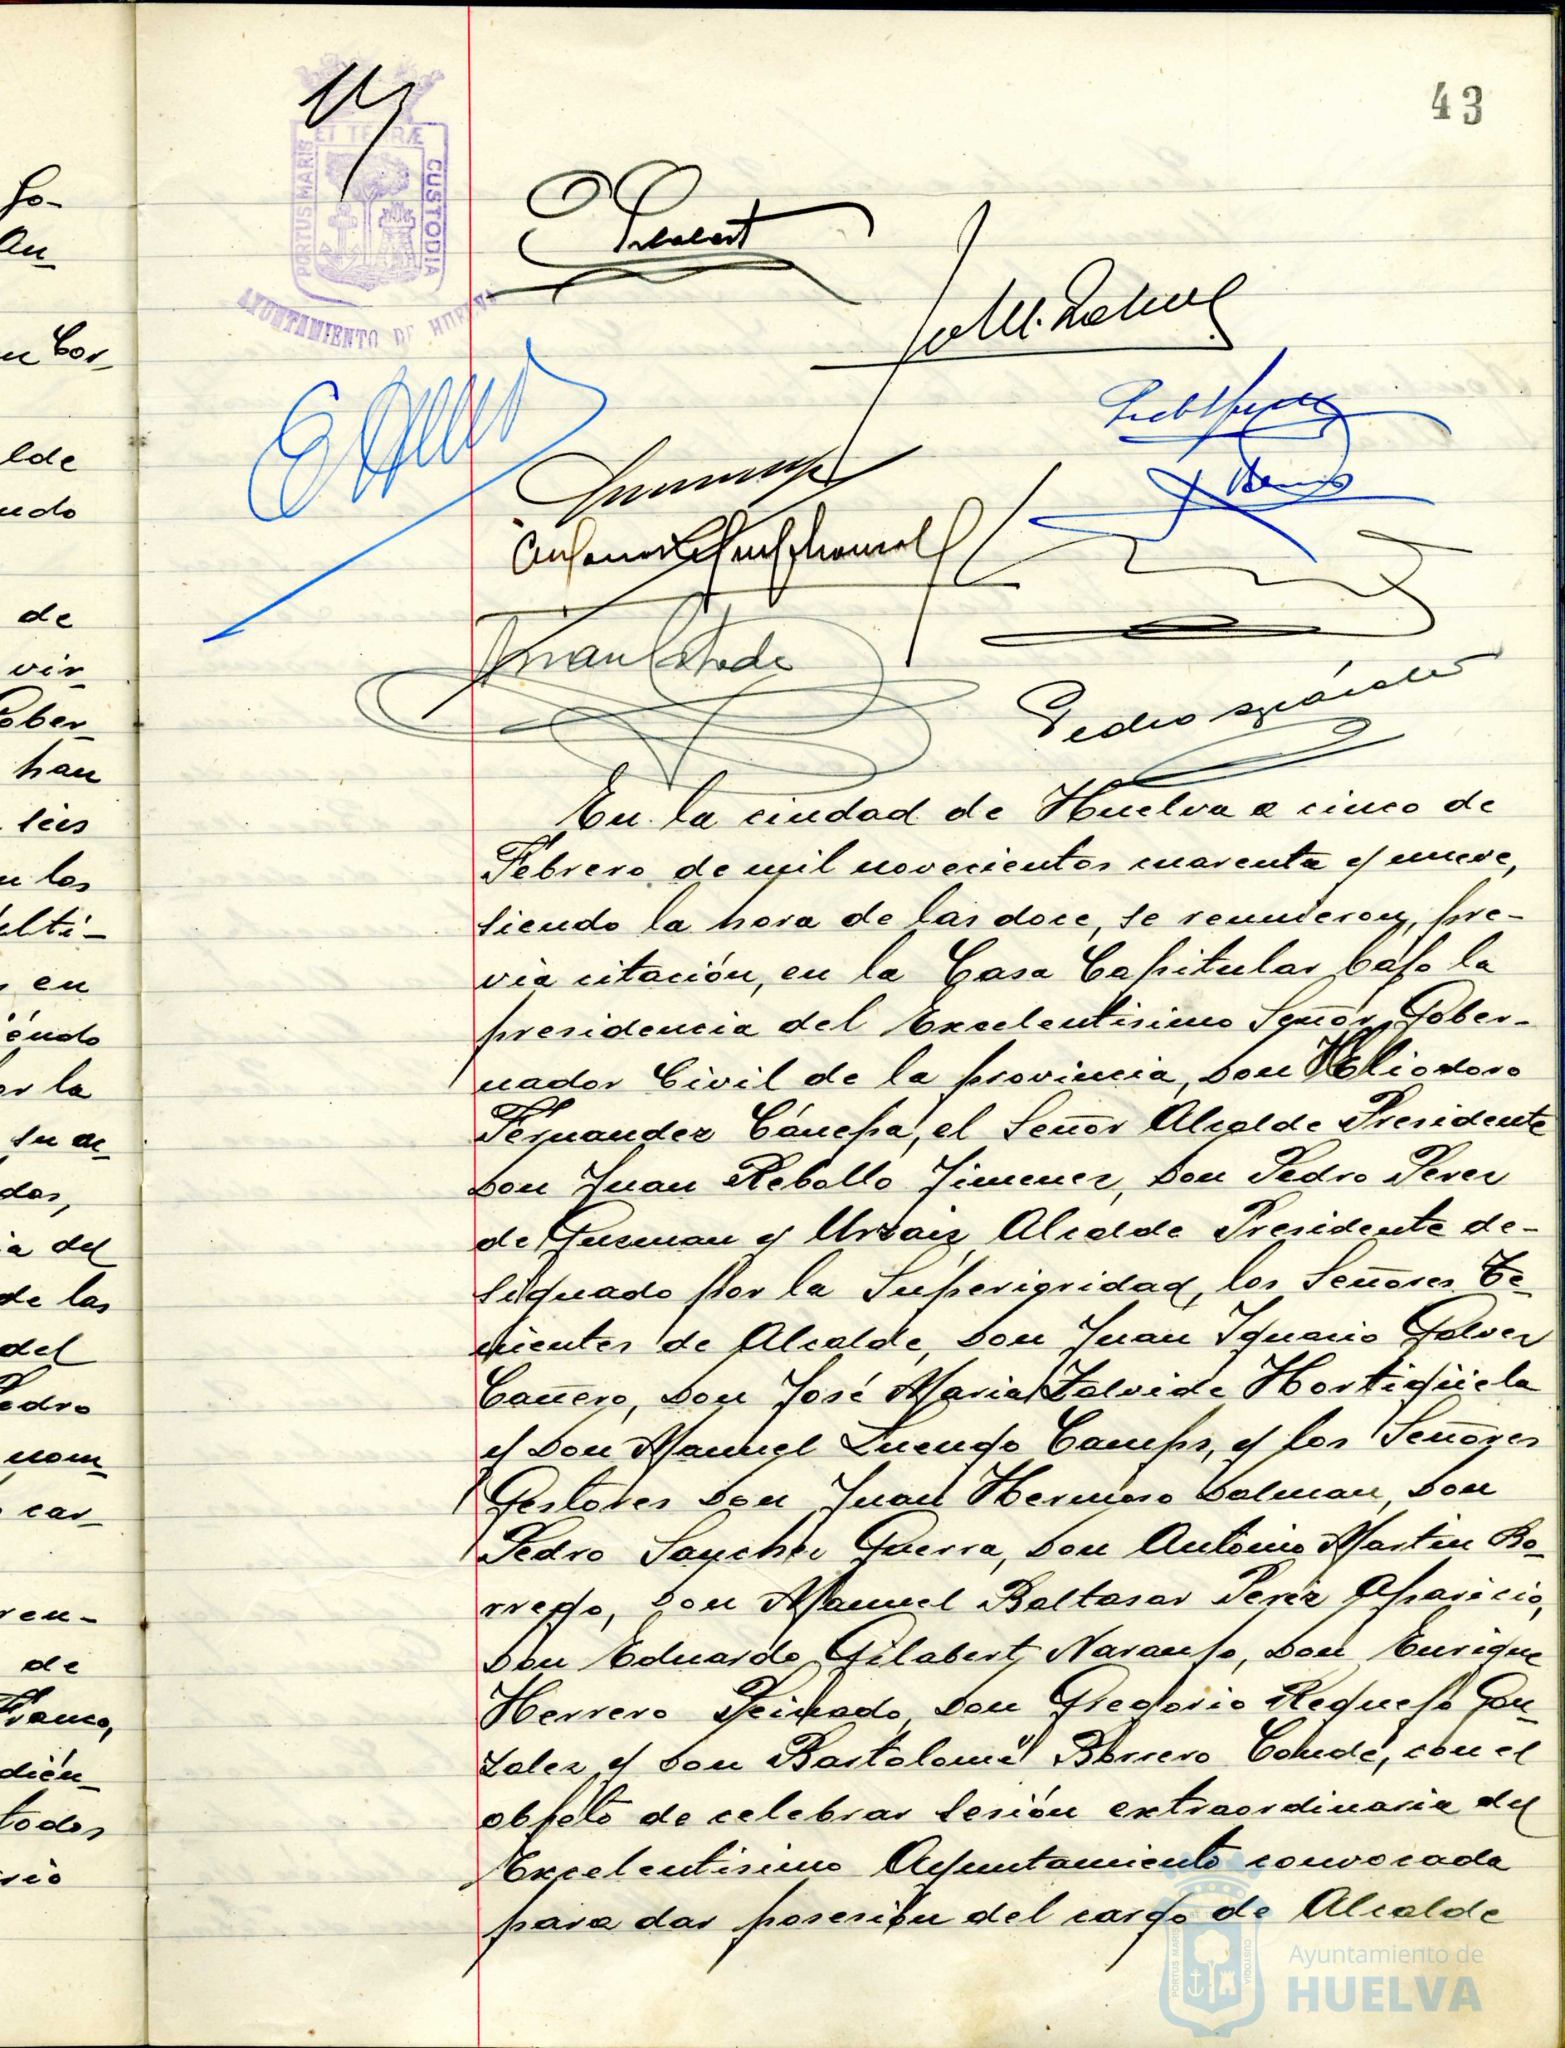 43
ET TERRÆ
PORTUS MARIS
CUSTODIA
AYUNTAMIENTO DE HUELVA
Gilabert
Pedro Sánchez
En la ciudad de Huelva a cinco de
Febrero de mil novecientos cuarenta y nueve,
siendo la hora de las doce, se reunieron, pre-
via citación, en la Casa Capitular bajo la
presidencia del Excelentisimo Señor Gober-
nador Civil de la provincia, Don Heliodoro
Fernandez Cánepa, el Señor Alcalde Presidente
Don Juan Rebollo Jimenez, Don Pedro Perez
de Guzman y Urzaiz, Alcalde Presidente de-
signado por la Superioridad, los Señores Te-
nientes de Alcalde, Don Juan Ignacio Galvez
Cañero, Don José Maria Zalvide Hortigüela
y Don Manuel Luengo Camps, y los Señores
Gestores Don Juan Hermoso Dolman, Don
Pedro Sanchez Guerra, Don Antonio Martin Bo-
rrego, Don Manuel Baltasar Perez Aparicio,
Don Eduardo Gilabert Naranjo, Don Enrique
Herrero Peinado, Don Gregorio Requejo Gon-
zalez y Don Bartolomé Borrero Conde, con el
objeto de celebrar sesión extraordinaria del
Excelentisimo Ayuntamiento convocada
para dar posesión del cargo de Alcalde
Ayuntamiento de
HUELVA
go-
an-
n Cor-
lde
ndo
de
vir-
Gober-
han
seis
n los
ulti-
en
iendo
or la
su ac-
dos,
ia del
de las
del
Pedro
nom-
car-
ren-
de
Franco,
dien-
todos
rio